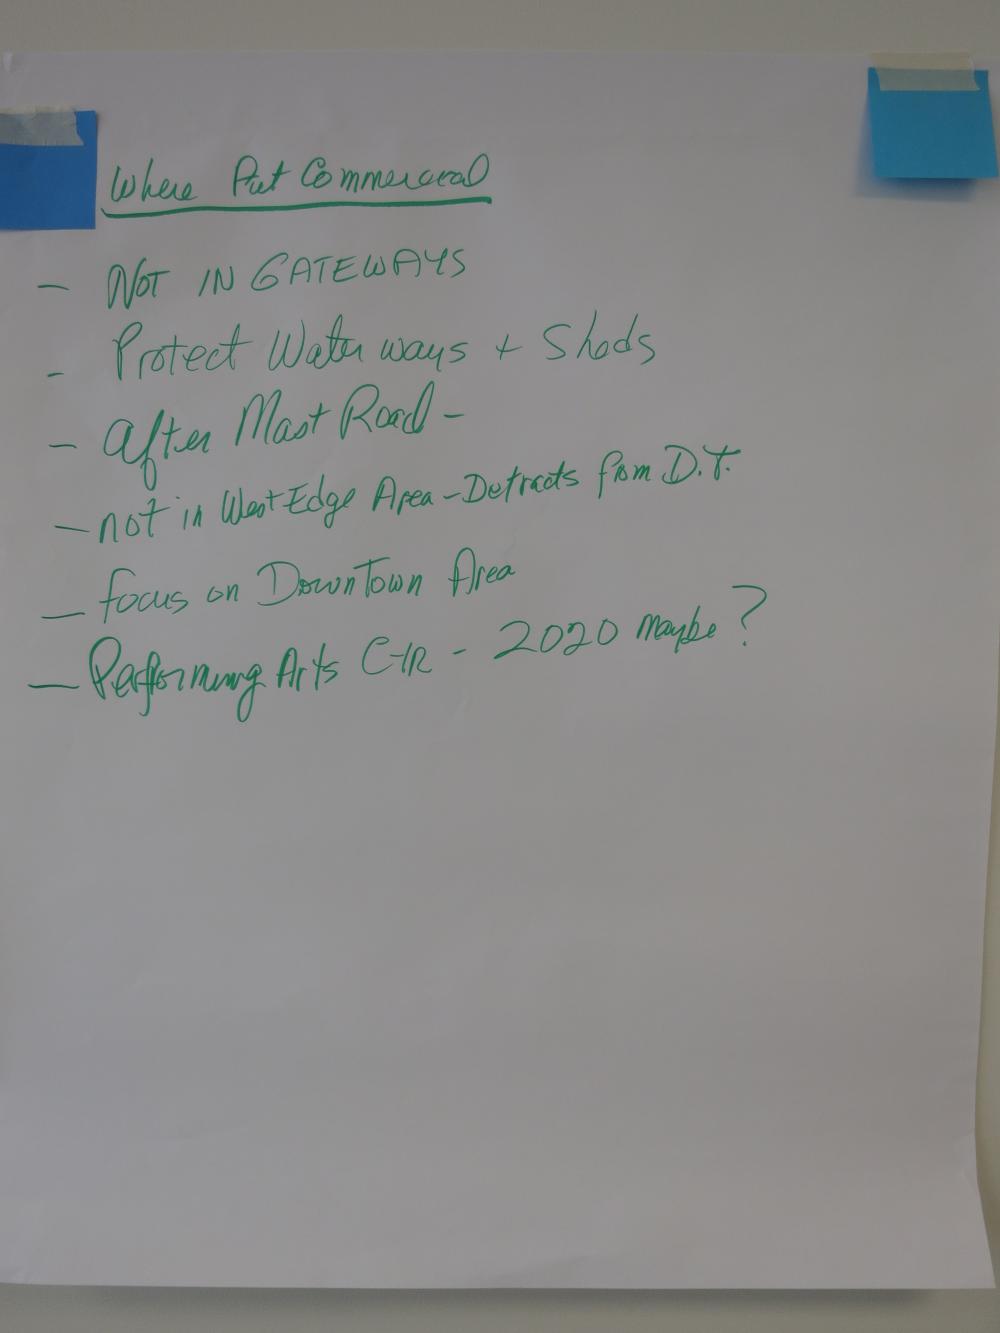 Where Put Commercial
- NOT IN GATEWAYS
- Protect Water ways + Sheds
- After Mast Road -
- not in West Edge Area - Detracts from D.T.
- focus on DownTown Area
- Performing Arts CTR - 2020 maybe?